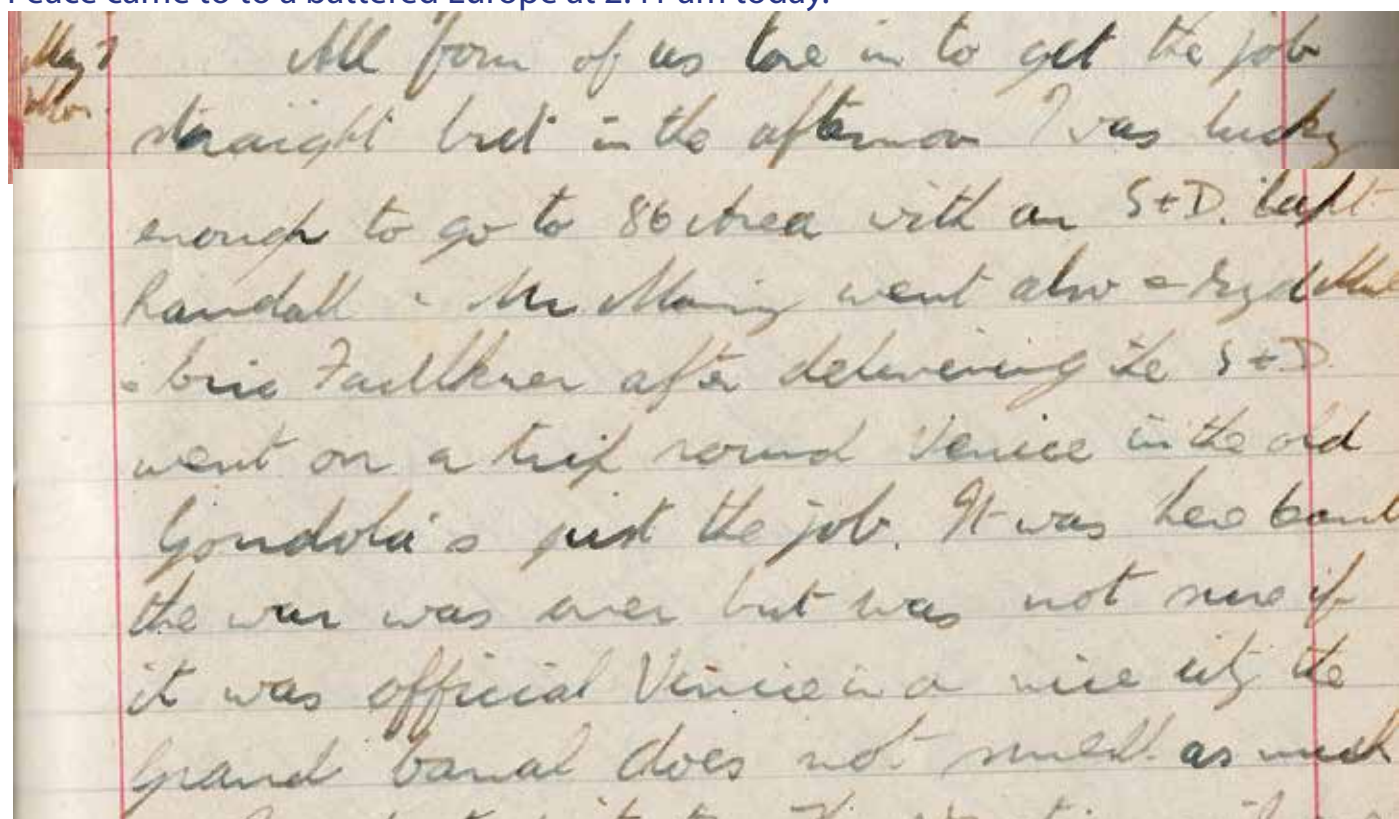 Peace came to to a battered Europe at 2.41 am today.
May 7 All four of us tore in to get the job
Mon. straight but in the afternoon I was lucky
enough to go to 86 Area with an S+D. Capt
Randall Mr went also
Eric Faulkner after delivering the S+D.
went on a trip round Venice in the old
Gondola's just the job. It was here
the war was over but was not sure if
it was official Venice is a nice city the
Grand Canal does not smell as much